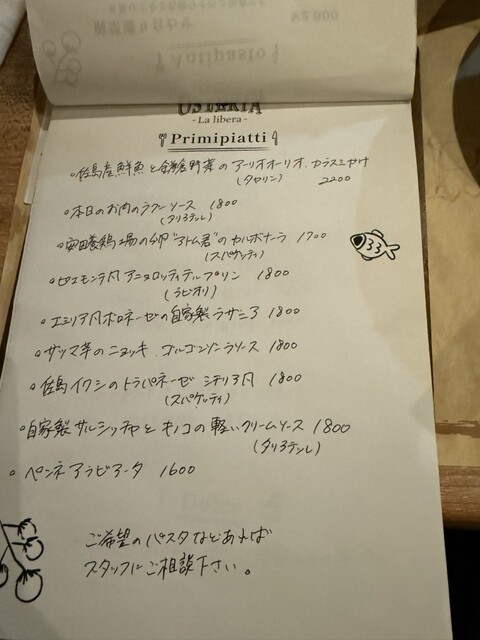 ¥2,000
Antipasto
OSTERIA
- La libera -
Primipiatti
・佐島産鮮魚と鎌倉野菜のアーリオオーリオ、カラスミがけ
(タヤリン) 2200
・本日のお肉のラグーソース 1800
(タリアテレ)
・安田養鶏場の卵"アトム君"のカルボナーラ 1700
(スパゲッティ)
・ピエモンテ風アニョロッティデルプリン 1800
(ラビオリ)
・エミリア風ボロネーゼの自家製ラザニア 1800
・サツマ芋のニョッキ、ゴルゴンゾーラソース 1800
・佐島イワシのトラパネーゼ シチリア風 1800
(スパゲッティ)
・自家製サルシッチャとキノコの軽いクリームソース 1800
(タリアテレ)
・ペンネアラビアータ 1600
ご希望のパスタなどあれば
スタッフにご相談下さい。